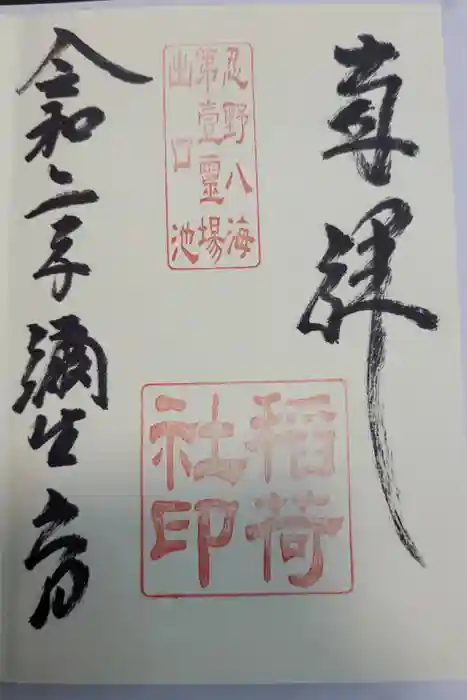 奉拝
忍野八海
第壹靈場
出口池
稲荷
社印
令和二年彌生六日